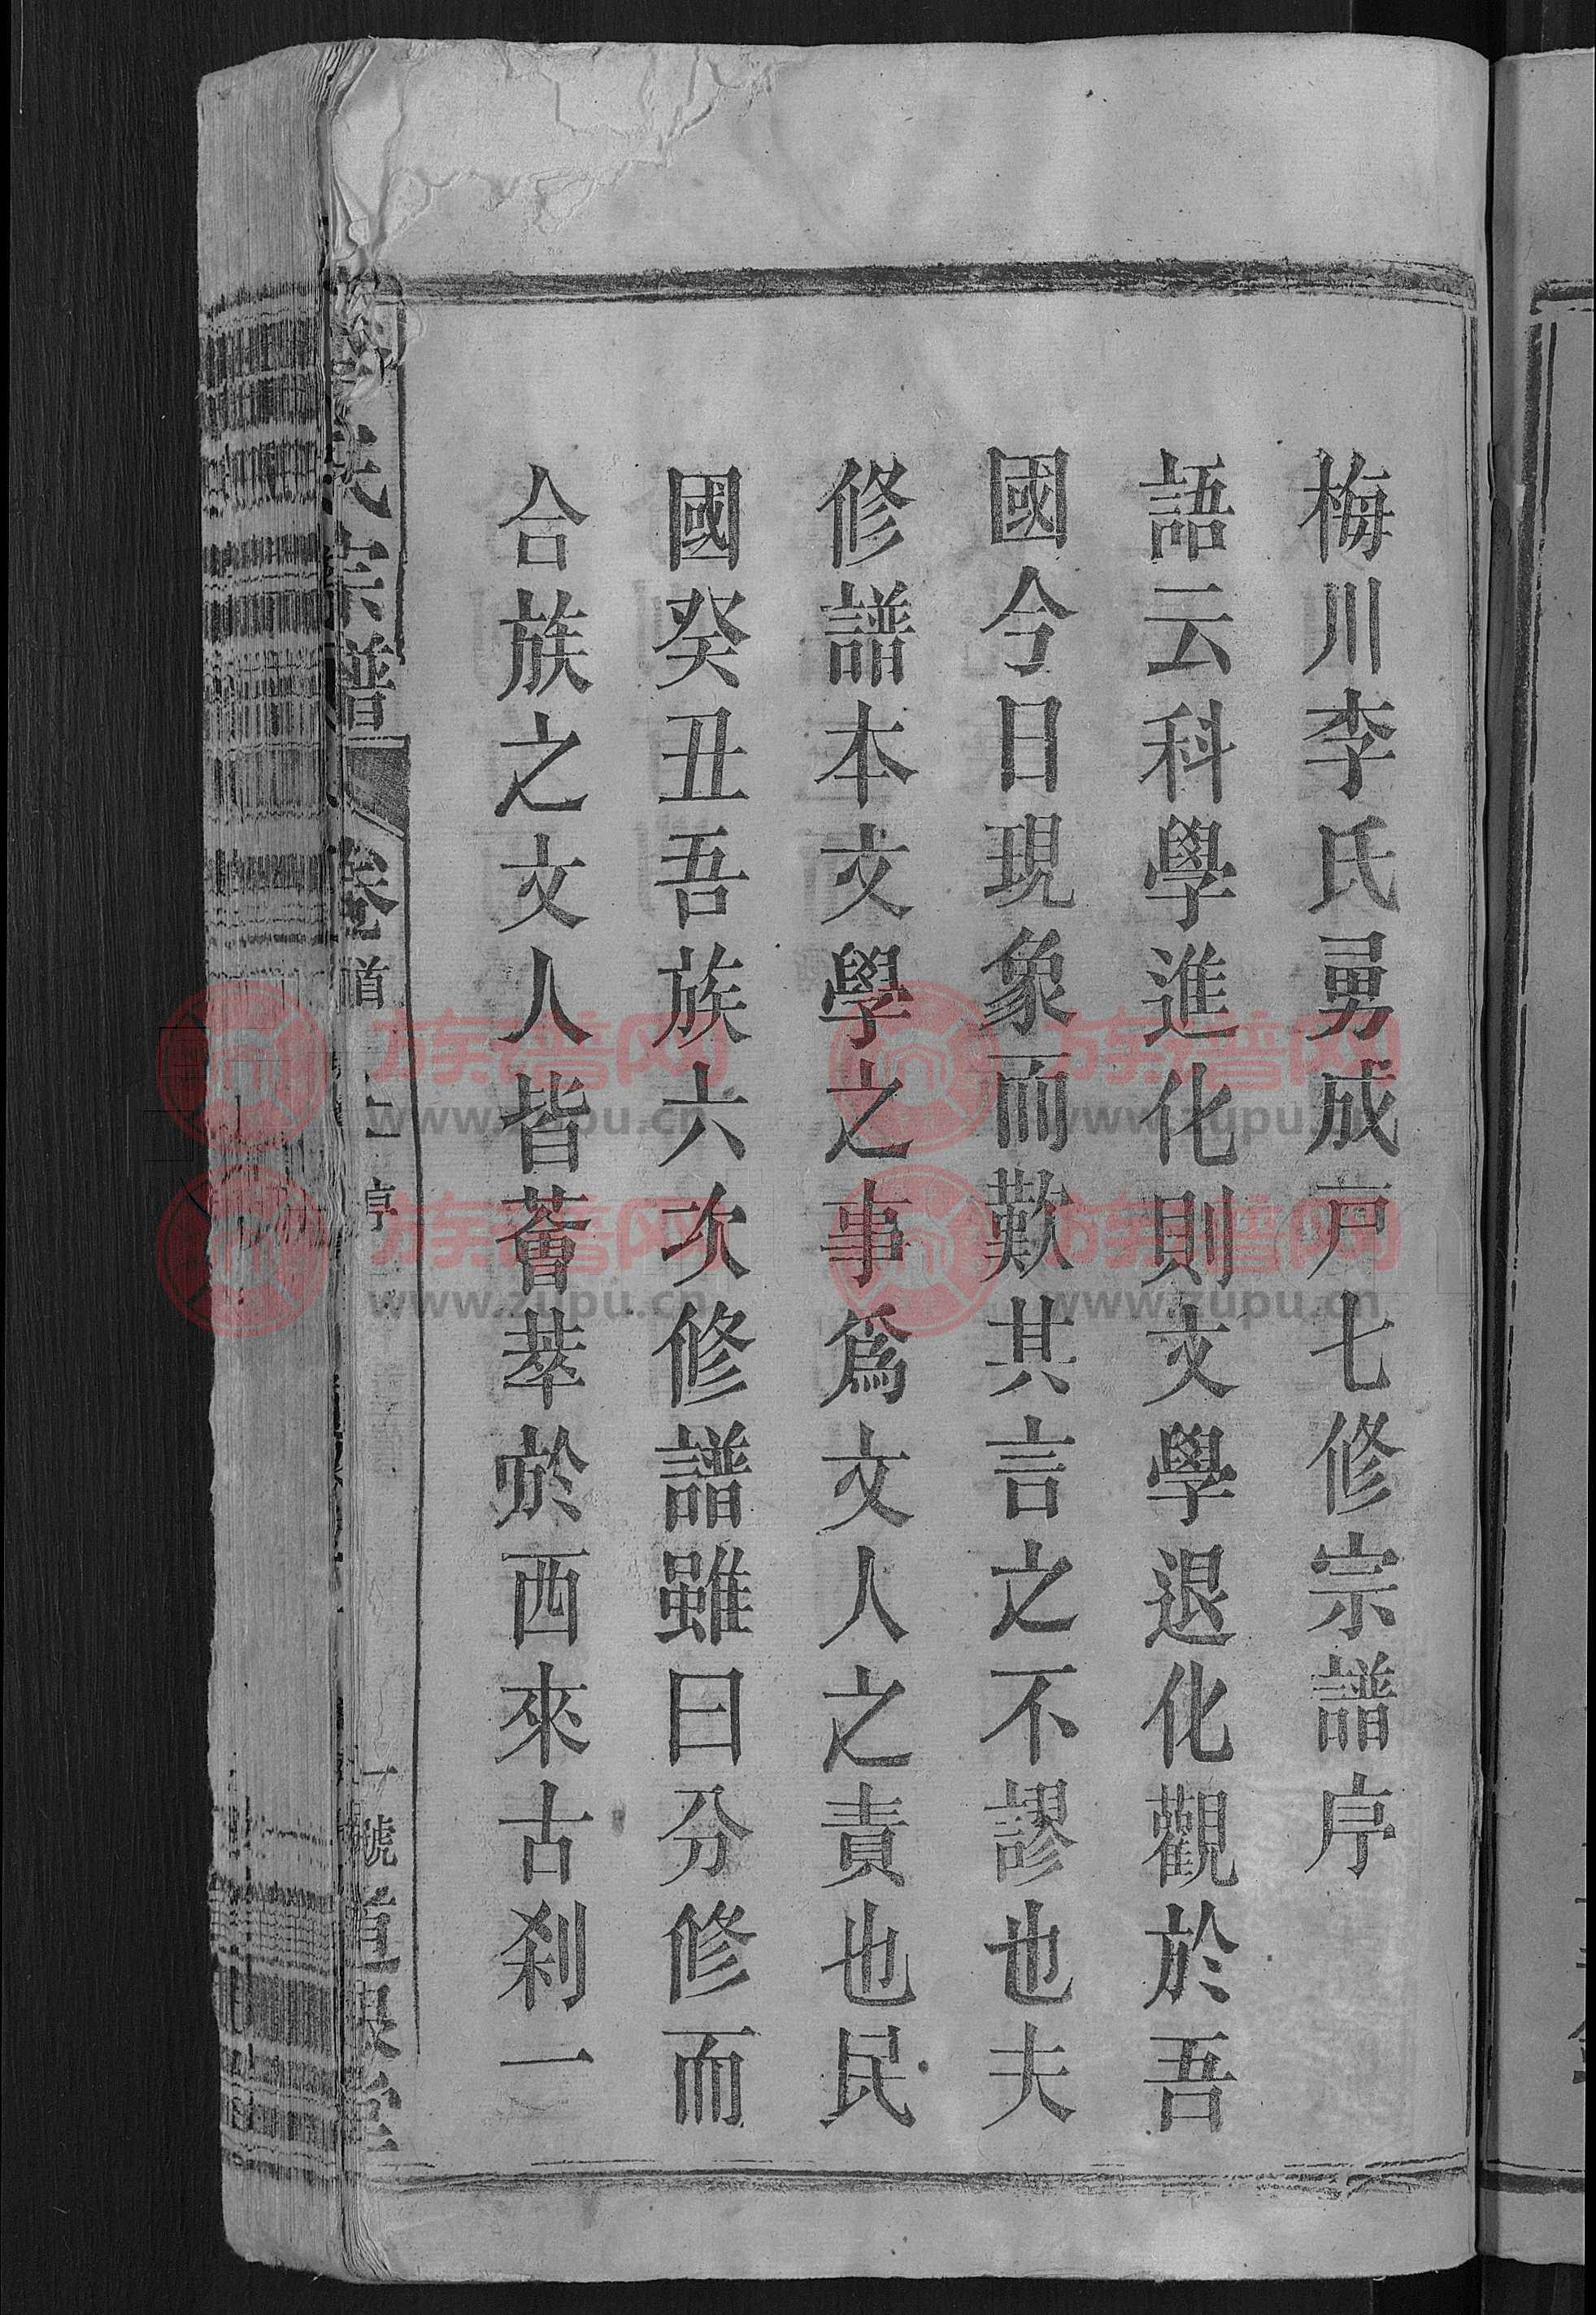 梅川李氏勇成戸七修宗譜序
語云科學進化則文學退化觀於吾
國今日現象而歎其言之不謬也夫
修譜本文學之事爲文人之責也民
國癸丑吾族六次修譜雖曰分修而
合族之文人皆薈萃於西來古刹一
氏宗譜 卷首 序 一號
族譜网 www.zupu.cn
族譜网 www.zupu.cn
族譜网 www.zupu.cn
族譜网 www.zupu.cn